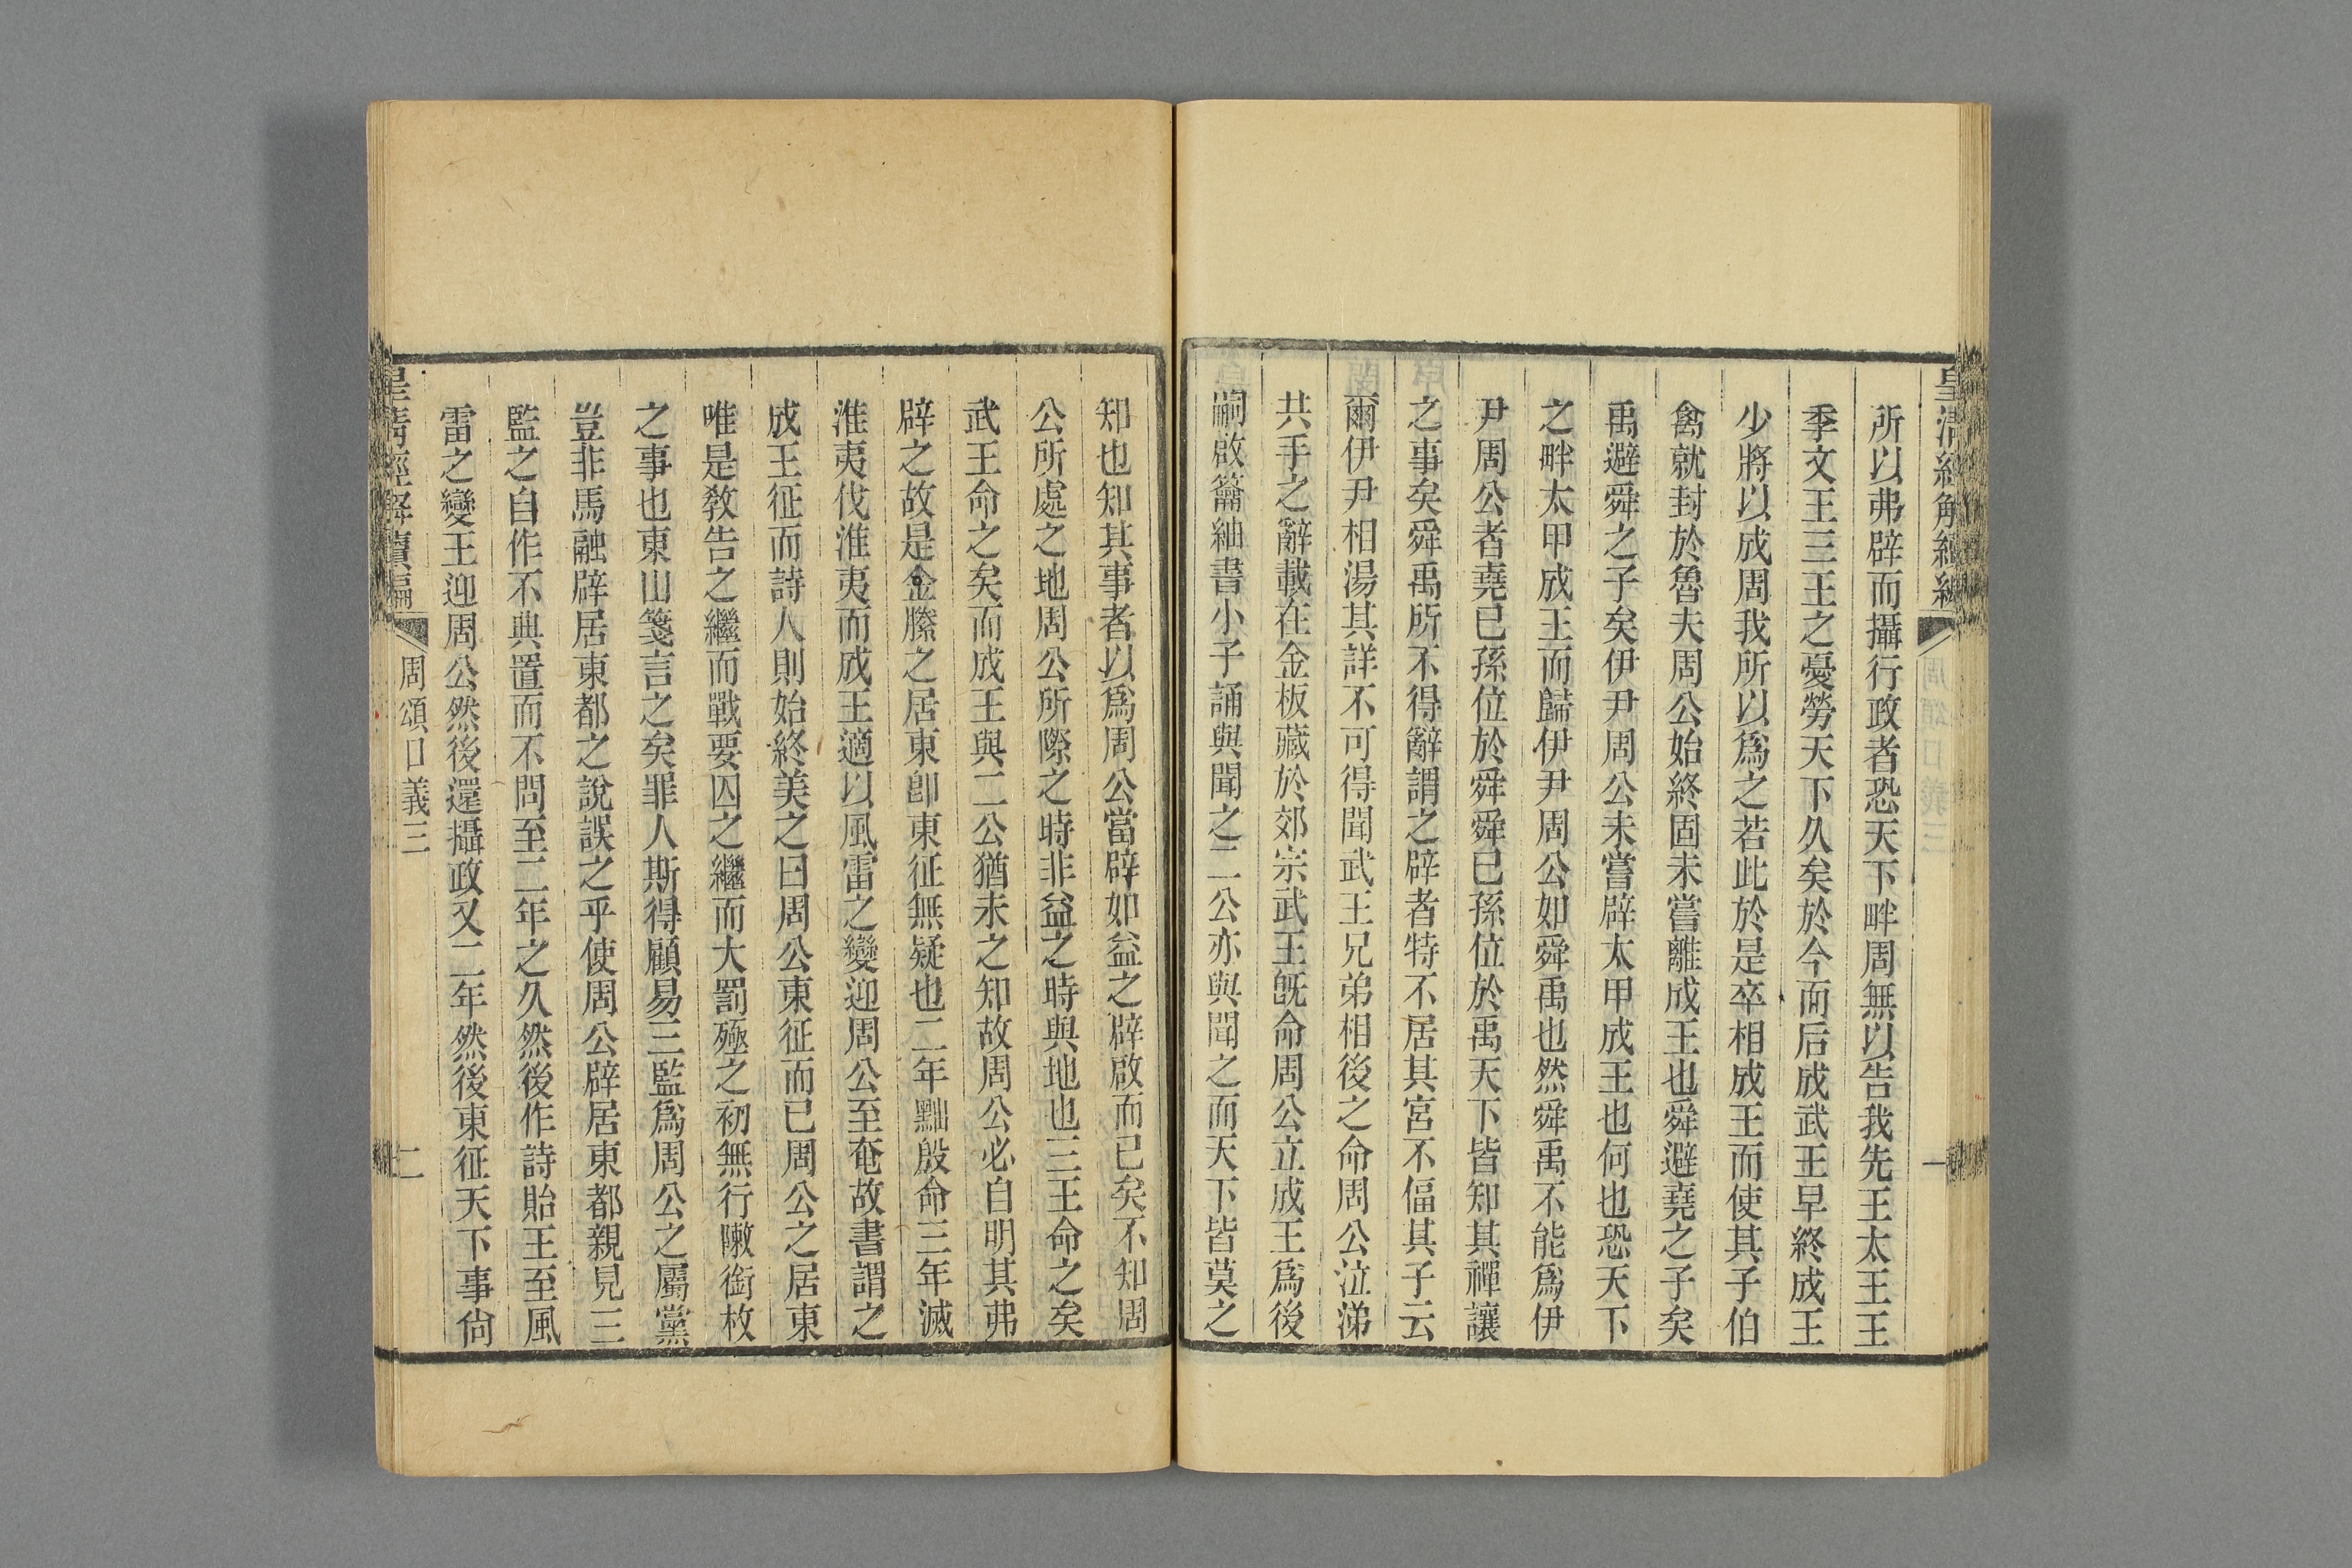 皇清經解續編
一
所以弗辟而攝行政者恐天下畔周無以告我先王太王王
季文王三王之憂勞天下久矣於今而后成武王早終成王
少將以成周我所以爲之若此於是卒相成王而使其子伯
禽就封於魯夫周公始終固未嘗離成王也舜避堯之子矣
禹避舜之子矣伊尹周公未嘗辟太甲成王也何也恐天下
之畔太甲成王而歸伊尹周公如舜禹也然舜禹不能爲伊
尹周公者堯已孫位於舜舜已孫位於禹天下皆知其禪讓
之事矣舜禹所不得辭謂之辟者特不居其宮不偪其子云
爾伊尹相湯其詳不可得聞武王兄弟相後之命周公泣涕
共手之辭載在金板藏於郊宗武王旣命周公立成王爲後
嗣啟籥紬書小子誦與聞之二公亦與聞之而天下皆莫之
知也知其事者以爲周公當辟如益之辟啟而已矣不知周
公所處之地周公所際之時非益之時與地也三王命之矣
武王命之矣而成王與二公猶未之知故周公必自明其弗
辟之故是金縢之居東卽東征無疑也二年黜殷命三年滅
淮夷伐淮夷而成王適以風雷之變迎周公至奄故書謂之
成王征而詩人則始終美之曰周公東征而已周公之居東
唯是敎告之繼而戰要囚之繼而大罰殛之初無行陳銜枚
之事也東山箋言之矣罪人斯得顧易三監爲周公之屬黨
豈非馬融辟居東都之說誤之乎使周公辟居東都親見三
監之自作不典置而不問至二年之久然後作詩貽王至風
雷之變王迎周公然後還攝政又二年然後東征天下事尙
皇清經解續編
周頌口義三
二